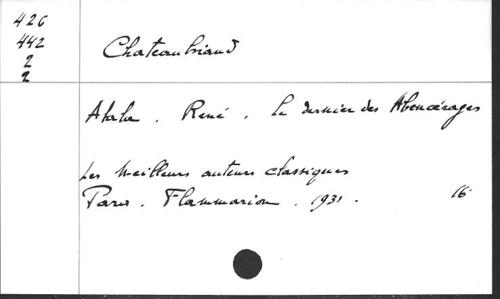 426
442
2
2
Chateaubriand
Atala . René . Le dernier des Abencérages
Les Meilleurs auteurs classiques
Paris . Flammarion . 1931 . 16